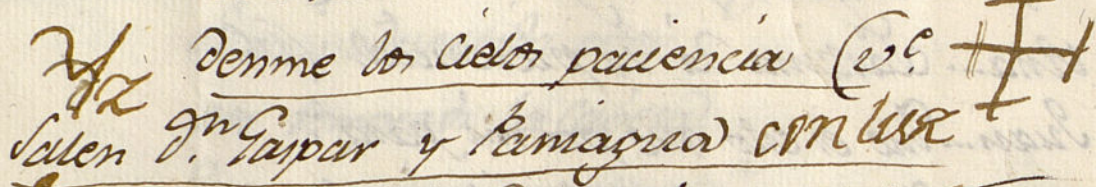 denme los Cielos paciencia (v.e
Salen D.n Gaspar y Paniagua con luz